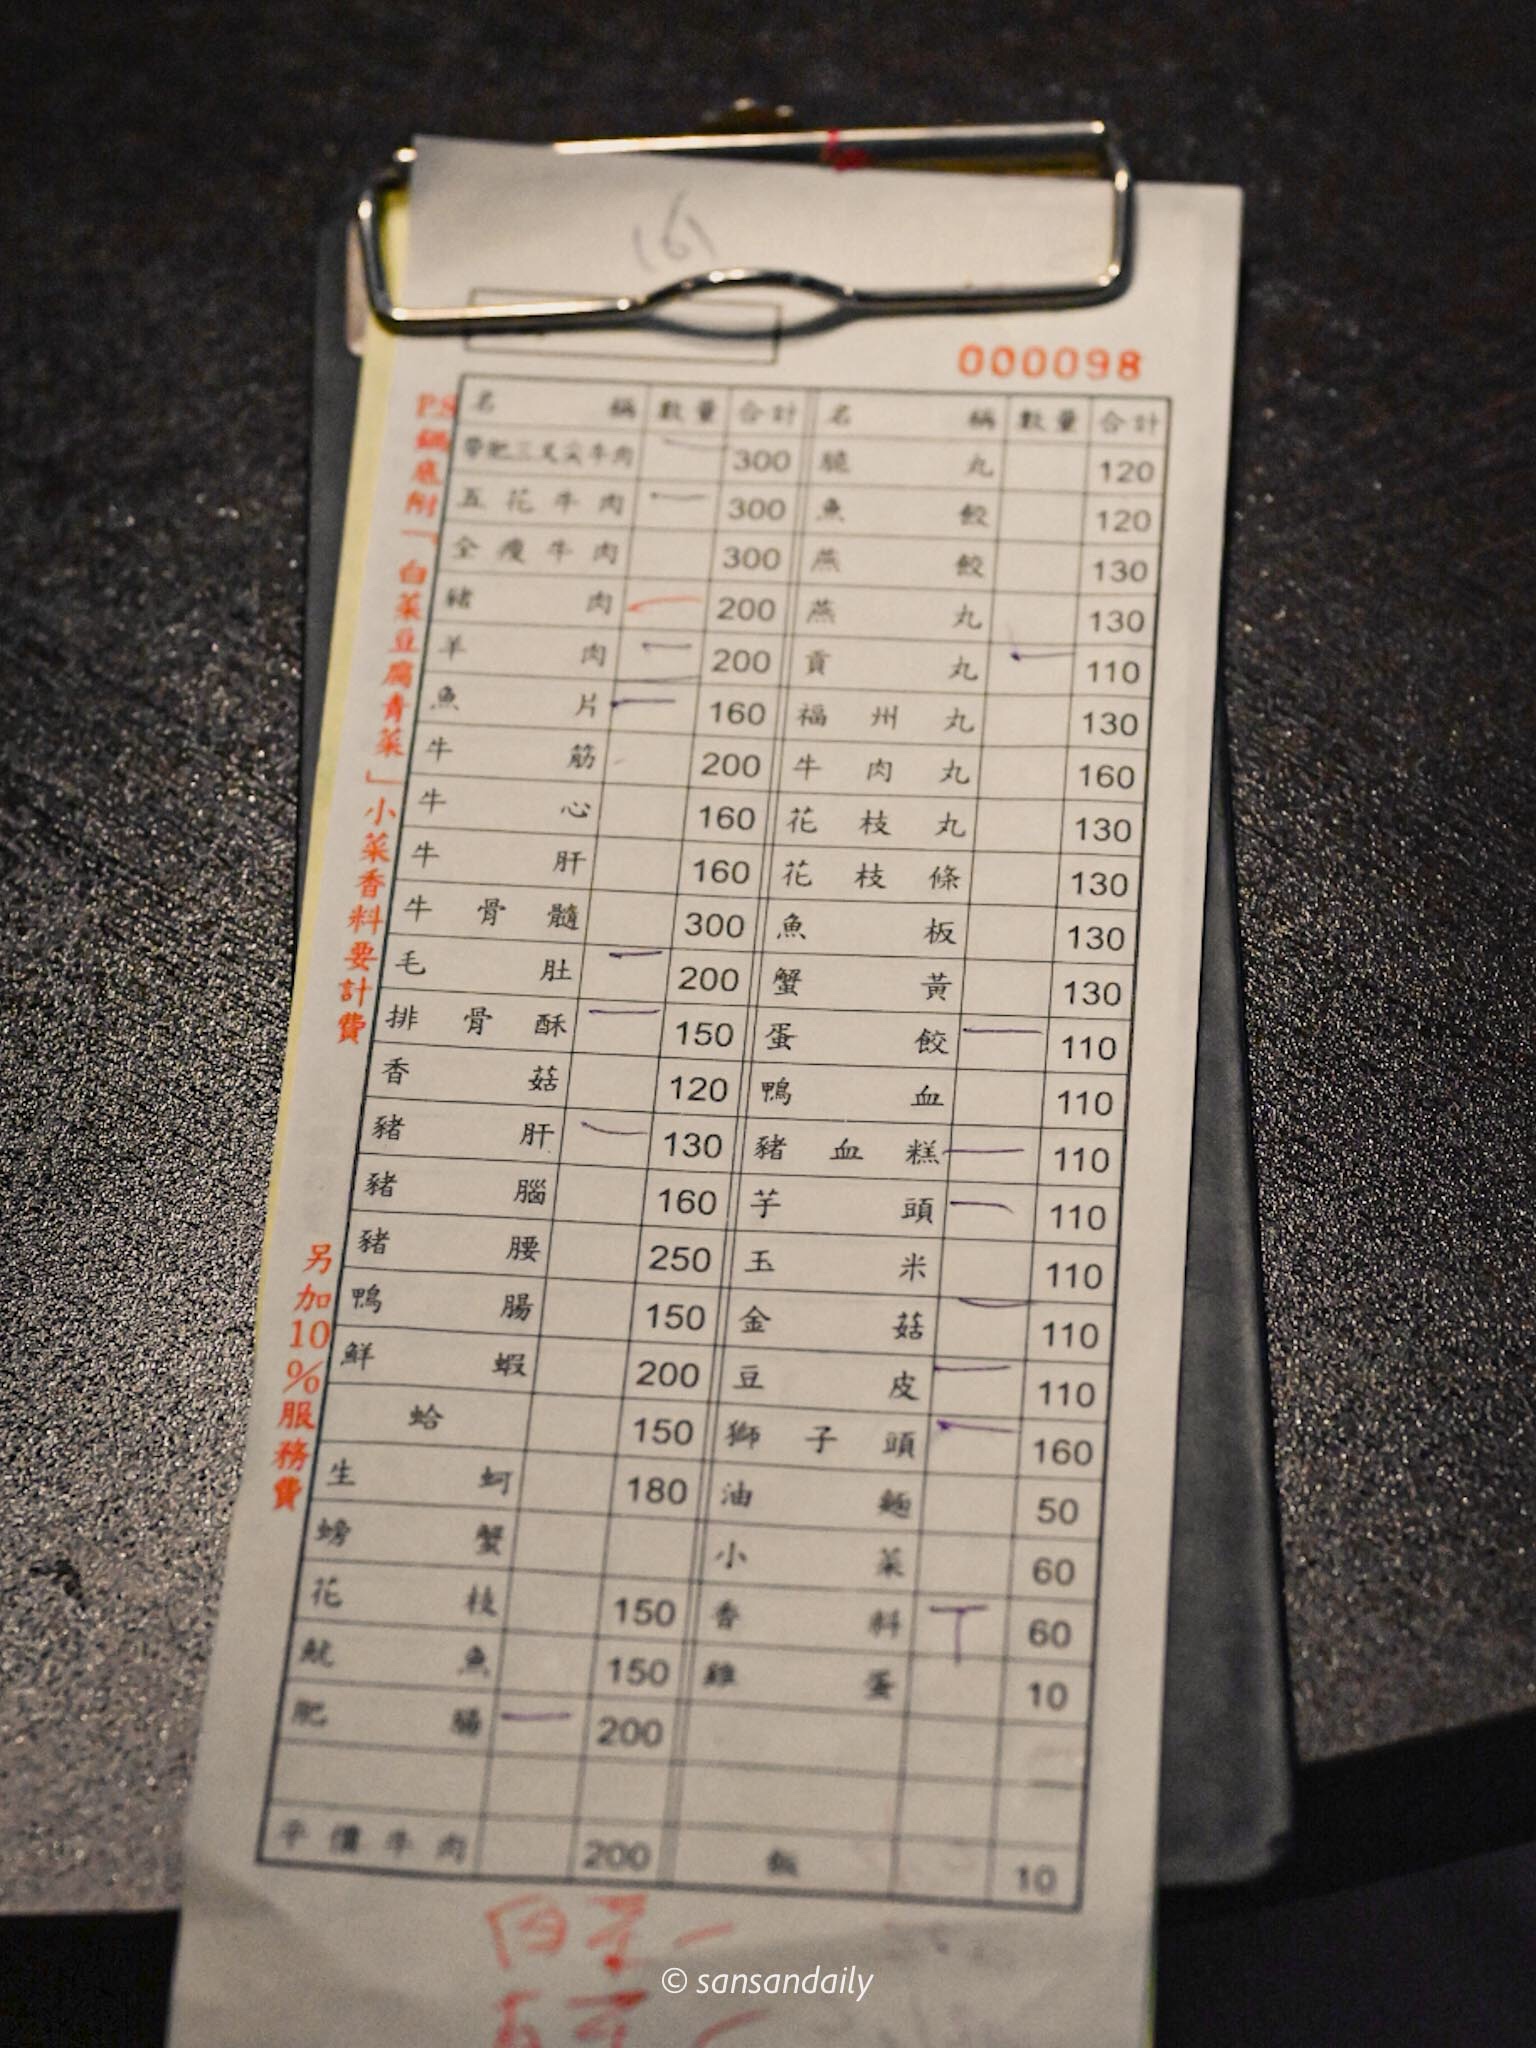 (6)
000098
名稱 數量 合計 名稱 數量 合計
帶肥三叉尖牛肉 300 脆丸 120
五花牛肉 一 300 魚餃 120
全瘦牛肉 300 燕餃 130
豬肉 一 200 燕丸 130
羊肉 一 200 貢丸 一 110
魚片 一 160 福州丸 130
牛筋 200 牛肉丸 160
牛心 160 花枝丸 130
牛肝 160 花枝條 130
牛骨髓 300 魚板 130
毛肚 一 200 蟹黃 130
排骨酥 一 150 蛋餃 一 110
香菇 120 鴨血 110
豬肝 一 130 豬血糕 一 110
豬腦 160 芋頭 一 110
豬腰 250 玉米 110
鴨腸 150 金菇 一 110
鮮蝦 200 豆皮 一 110
蛤 150 獅子頭 一 160
生蚵 180 油麵 50
螃蟹 小菜 60
花枝 150 香料 丅 60
魷魚 150 雞蛋 10
肥腸 一 200
平價牛肉 200 飯 10
P.S鍋底附「白菜豆腐青菜」小菜香料要計費
另加10%服務費
白菜一
© sansandaily